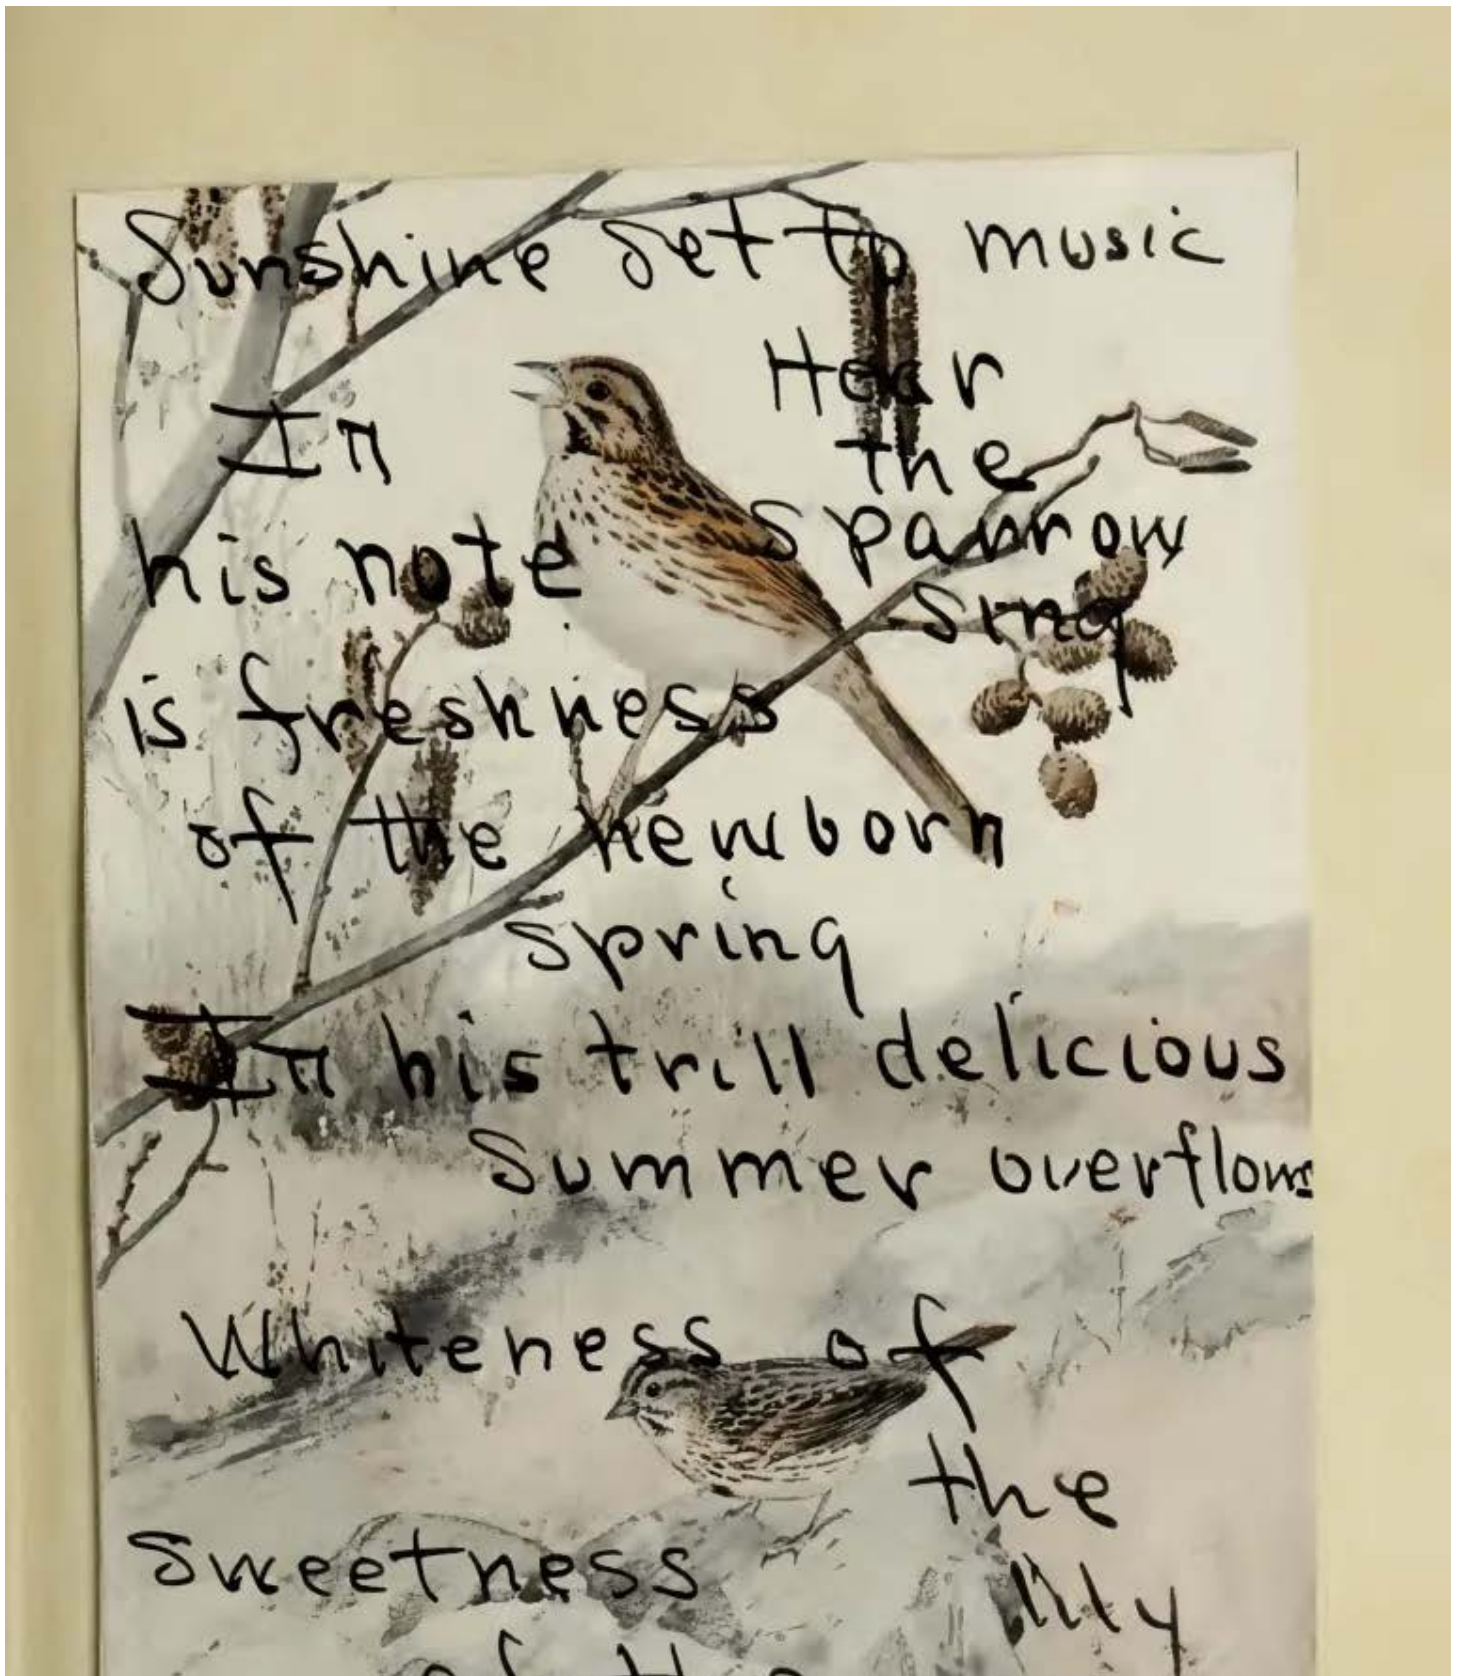 Sunshine Set to music
Hear
the
Sparrow
Sing
In
his note
is freshness
of the newborn
Spring
In his trill delicious
Summer overflows
Whiteness of
the
lily
Sweetness
of the